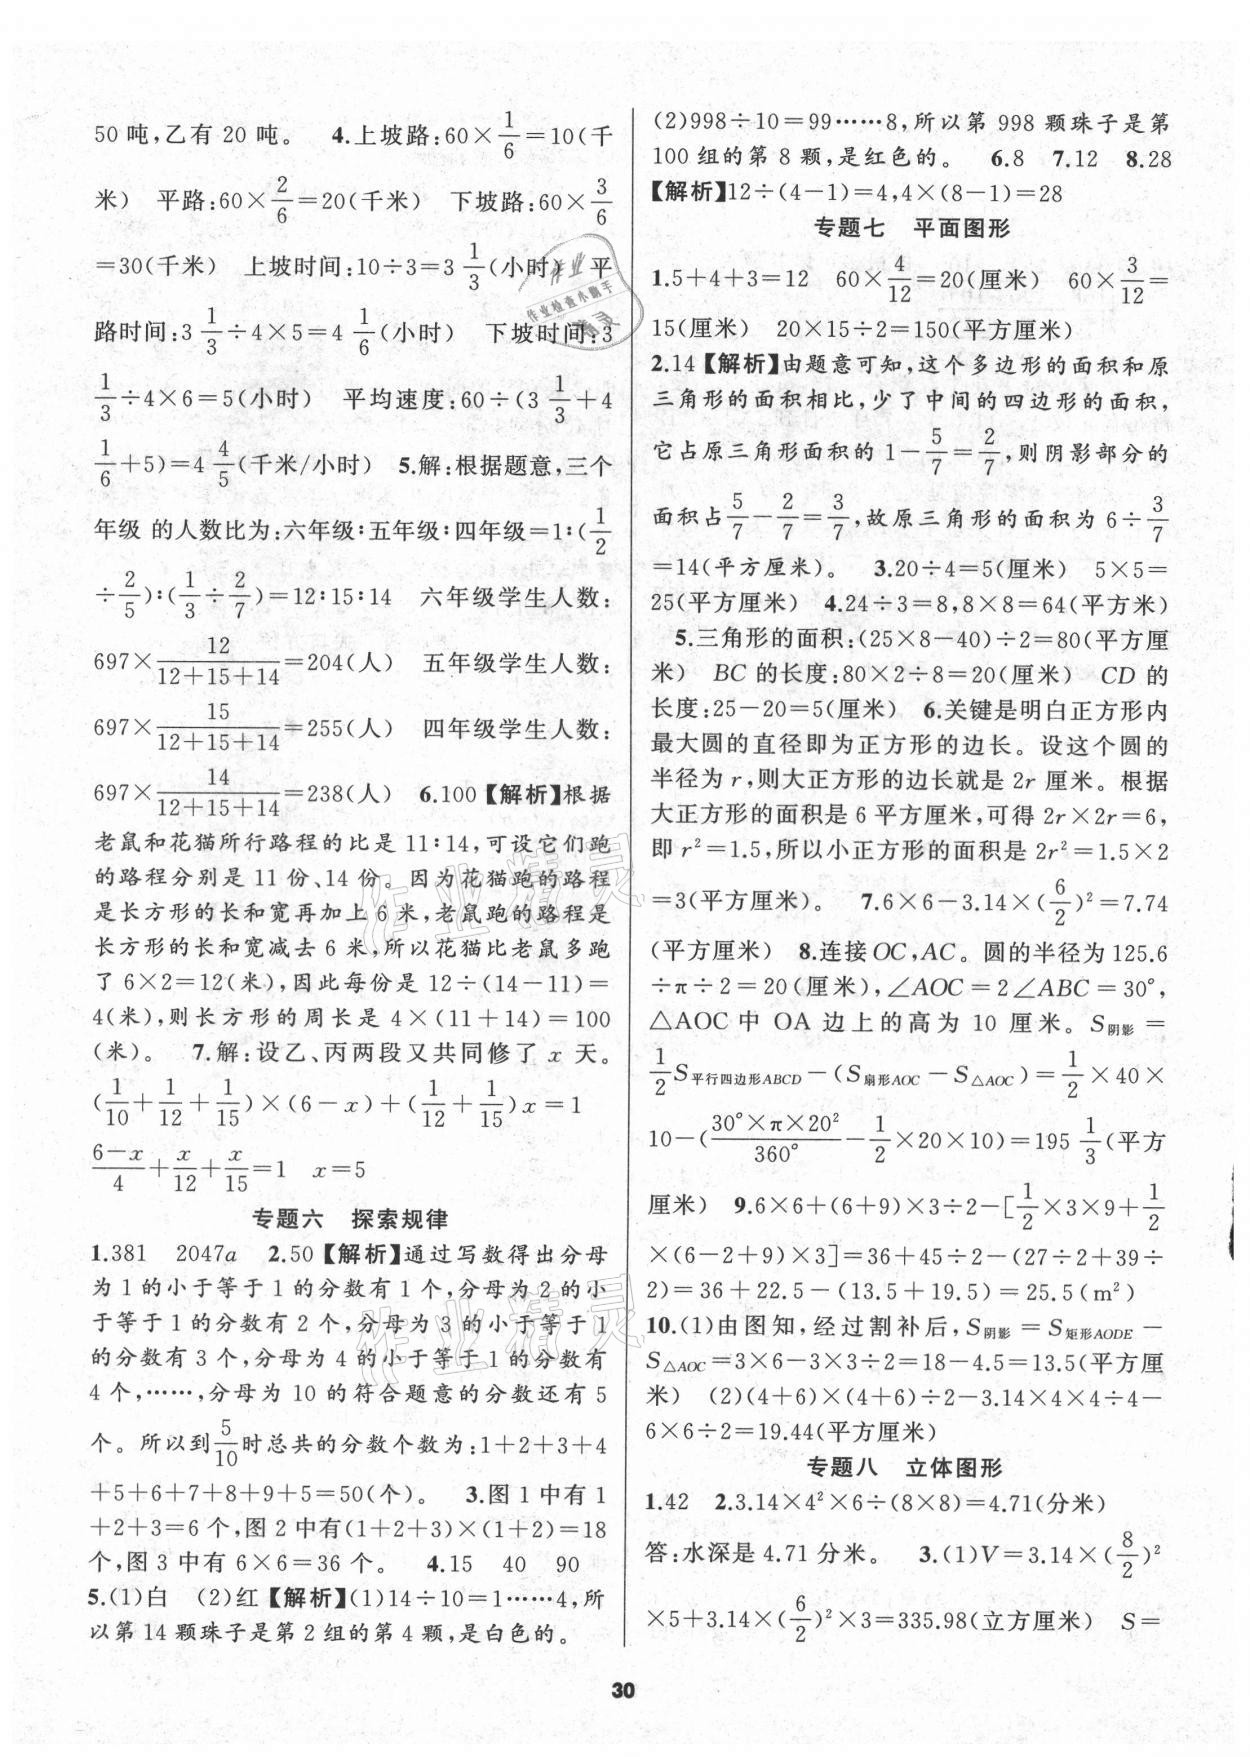 50 吨,乙有 20 吨。 4.上坡路:60×1/6=10(千
米) 平路:60×2/6=20(千米) 下坡路:60×3/6
=30(千米) 上坡时间:10÷3=3 1/3(小时) 平
路时间:3 1/3÷4×5=4 1/6(小时) 下坡时间:3
1/3÷4×6=5(小时) 平均速度:60÷(3 1/3+4
1/6+5)=4 4/5(千米/小时) 5.解:根据题意,三个
年级 的人数比为:六年级:五年级:四年级=1:(1/2
÷2/5):(1/3÷2/7)=12:15:14 六年级学生人数:
697×12/(12+15+14)=204(人) 五年级学生人数:
697×15/(12+15+14)=255(人) 四年级学生人数:
697×14/(12+15+14)=238(人) 6.100【解析】根据
老鼠和花猫所行路程的比是 11:14,可设它们跑
的路程分别是 11 份、14 份。因为花猫跑的路程
是长方形的长和宽再加上 6 米,老鼠跑的路程是
长方形的长和宽减去 6 米,所以花猫比老鼠多跑
了 6×2=12(米),因此每份是 12÷(14-11)=
4(米),则长方形的周长是 4×(11+14)=100
(米)。 7.解:设乙、丙两段又共同修了 x 天。
(1/10+1/12+1/15)×(6-x)+(1/12+1/15)x=1
(6-x)/4+x/12+x/15=1 x=5
专题六 探索规律
1.381 2047a 2.50【解析】通过写数得出分母
为 1 的小于等于 1 的分数有 1 个,分母为 2 的小
于等于 1 的分数有 2 个,分母为 3 的小于等于 1
的分数有 3 个,分母为 4 的小于等于 1 的分数有
4 个,……,分母为 10 的符合题意的分数还有 5
个。所以到5/10时总共的分数个数为:1+2+3+4
+5+6+7+8+9+5=50(个)。 3.图 1 中有 1
+2+3=6 个,图 2 中有(1+2+3)×(1+2)=18
个,图 3 中有 6×6=36 个。 4.15 40 90
5.(1)白 (2)红【解析】(1)14÷10=1……4,所
以第 14 颗珠子是第 2 组的第 4 颗,是白色的。
(2)998÷10=99……8,所以第 998 颗珠子是第
100 组的第 8 颗,是红色的。 6.8 7.12 8.28
【解析】12÷(4-1)=4,4×(8-1)=28
专题七 平面图形
1.5+4+3=12 60×4/12=20(厘米) 60×3/12=
15(厘米) 20×15÷2=150(平方厘米)
2.14【解析】由题意可知,这个多边形的面积和原
三角形的面积相比,少了中间的四边形的面积,
它占原三角形面积的 1-5/7=2/7,则阴影部分的
面积占5/7-2/7=3/7,故原三角形的面积为 6÷3/7
=14(平方厘米)。 3.20÷4=5(厘米) 5×5=
25(平方厘米) 4.24÷3=8,8×8=64(平方米)
5.三角形的面积:(25×8-40)÷2=80(平方厘
米) BC 的长度:80×2÷8=20(厘米) CD 的
长度:25-20=5(厘米) 6.关键是明白正方形内
最大圆的直径即为正方形的边长。设这个圆的
半径为 r,则大正方形的边长就是 2r 厘米。根据
大正方形的面积是 6 平方厘米,可得 2r×2r=6,
即 r²=1.5,所以小正方形的面积是 2r²=1.5×2
=3(平方厘米)。 7.6×6-3.14×(6/2)²=7.74
(平方厘米) 8.连接 OC,AC。圆的半径为 125.6
÷π÷2=20(厘米),∠AOC=2∠ABC=30°,
△AOC 中 OA 边上的高为 10 厘米。S阴影=
1/2 S平行四边形ABCD-(S扇形AOC-S△AOC)=1/2×40×
10-(30°×π×20²/360°-1/2×20×10)=195 1/3(平方
厘米) 9.6×6+(6+9)×3÷2-[1/2×3×9+1/2
×(6-2+9)×3]=36+45÷2-(27÷2+39÷
2)=36+22.5-(13.5+19.5)=25.5(m²)
10.(1)由图知,经过割补后,S阴影=S矩形AODE-
S△AOC=3×6-3×3÷2=18-4.5=13.5(平方厘
米) (2)(4+6)×(4+6)÷2-3.14×4×4÷4-
6×6÷2=19.44(平方厘米)
专题八 立体图形
1.42 2.3.14×4²×6÷(8×8)=4.71(分米)
答:水深是 4.71 分米。 3.(1)V=3.14×(8/2)²
×5+3.14×(6/2)²×3=335.98(立方厘米) S=
30
作业精灵
作业精灵
作业
作业检查小助手
精灵